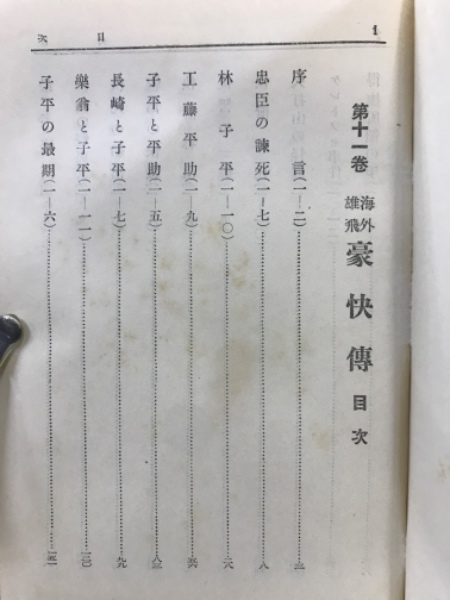 目次
1
第十一卷 海外雄飛 豪快傳 目次
序言(一―二)
忠臣の諫死(一―七)………八
林子平(一―一〇)
工藤平助(一―九)
子平と平助(一―五)………八三
長崎と子平(一―七)………九九
樂翁と子平(一―一一)
子平の最期(一―六)